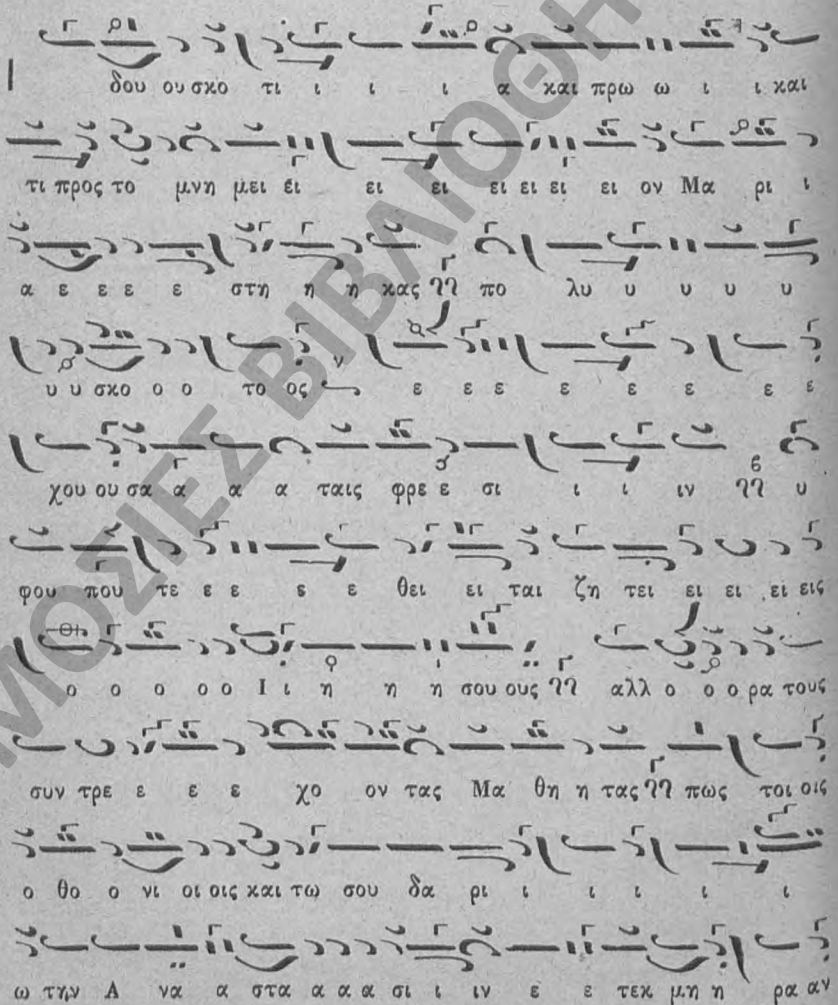 δου ου σκο τι ι ι ι α και πρω ω ι ι και
τι προς το μνη μει ει ει ει ει ει ει ει ον Μα ρι ι
α ε ε ε ε στη η η κας πο λυ υ υ υ υ
υ υ σκο ο ο το ος ε ε ε ε ε ε ε ε
χου ου σα α α α ταις φρε ε σι ι ι ιν υ
φου που τε ε ε ε ε θει ει ται ζη τει ει ει ει εις
ο ο ο ο ο Ι ι η η η σου ους αλλ ο ο ο ρα τους
συν τρε ε ε ε χο ον τας Μα θη η τας πως τοι οις
ο θο ο νι οι οις και τω σου δα ρι ι ι ι ι ι
ω την Α να α στα α α α σι ι ιν ε ε τεκ μη η ρα αν
ΜΟΣΙΕΣ ΒΙΒΛΙΟΘΗ